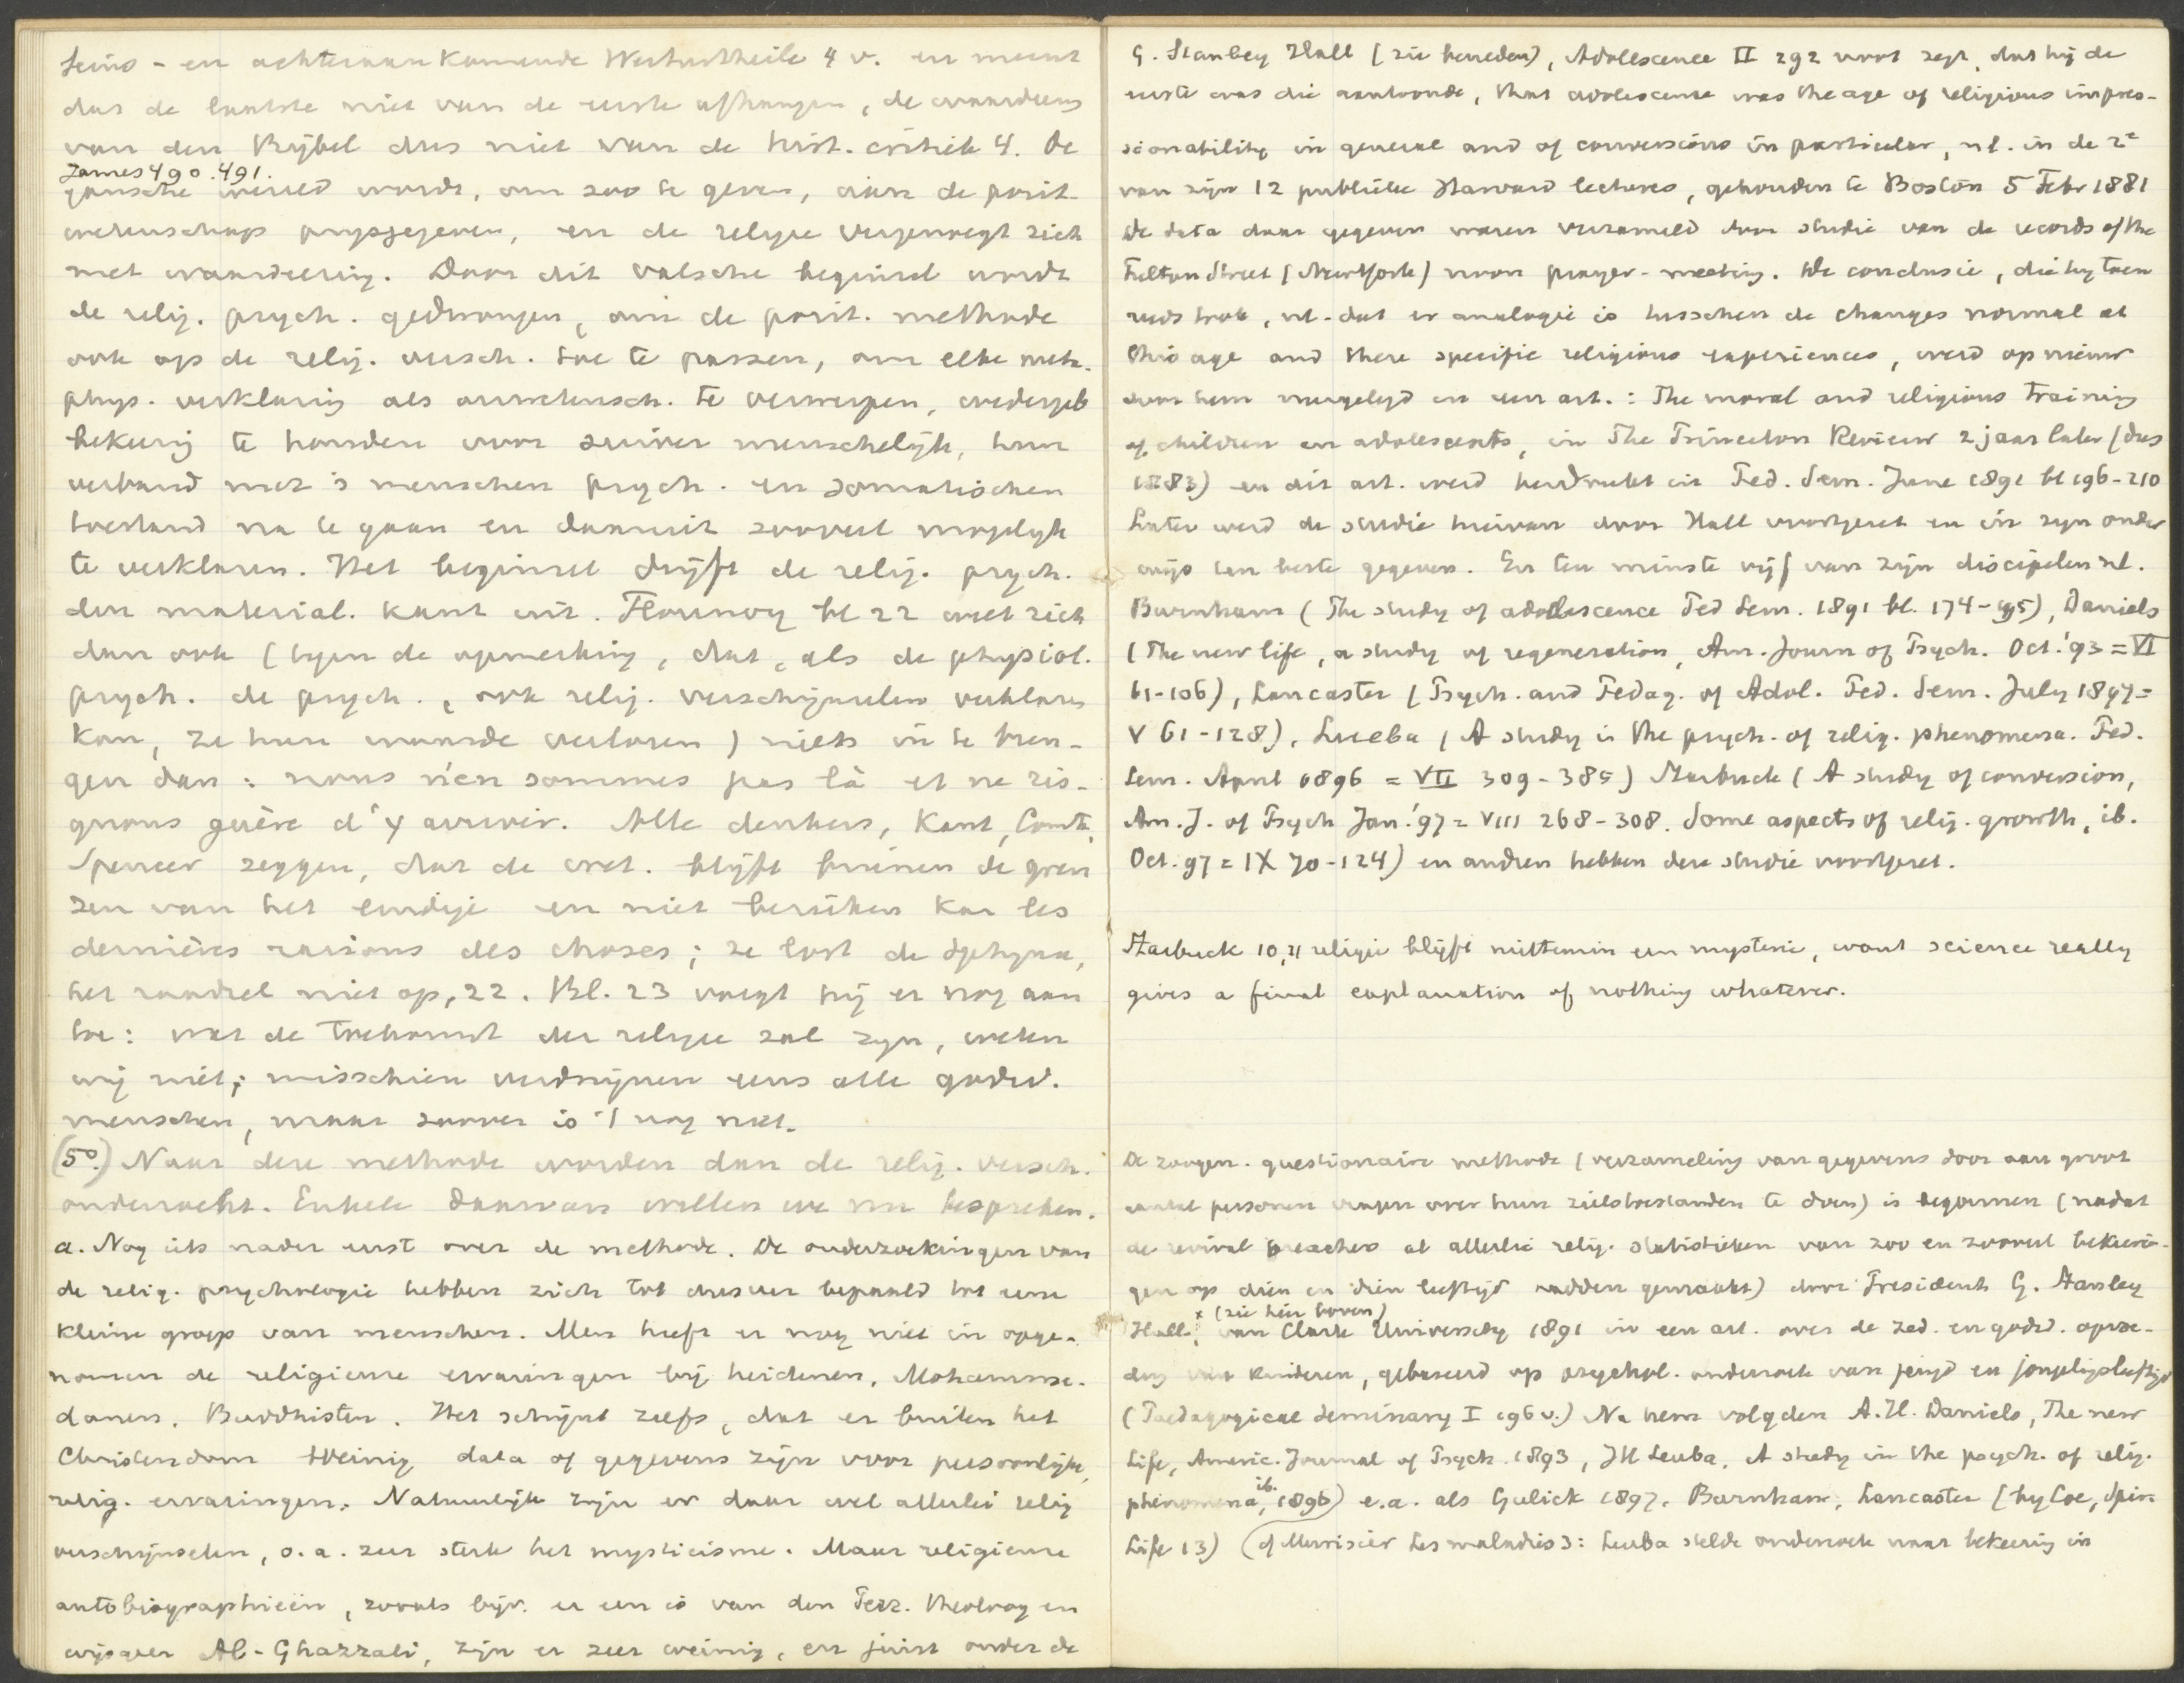 Seins- en achteraan komende Werturtheile 4 v. en meent
dat de laatste niet van de eerste afhangen, de waardeering
van den Bijbel dus niet van de hist. critiek 4. De
James 490. 491.
gansche wereld wordt, om zoo te geven, aan de posit.
wetenschap prijsgegeven, en de religie vergenoegt zich
met waardeering. Door dit valsche beginsel wordt
de relig. psych. gedrongen, om de posit. methode
ook op de relig. versch. toe te passen, om elke meta-
phys. verklaring als onwetensch. te verwerpen, wedergeb
bekeering te houden voor zuiver menschelijk, hun
verband met 's menschen psych. en somatischen
toestand na te gaan en daaruit zooveel mogelijk
te verklaren. Het beginsel drijft de relig. psych.
den material. kant uit. Flournoy bl 22 weet zich
dan ook (tegen de opmerking, dat, als de physiol.
psych. de psych., ook relig. verschijnselen verklaren
kan, ze hun waarde verloren) niets in te bren-
gen dan: nous n'en sommes pas là et ne ris-
quons guère d'y arriver. Alle denkers, Kant, Comte,
Spencer zeggen, dat de wet. blijft binnen de gren
zen van het eindige en niet bereiken kan les
dernières raisons des choses; ze lost de sphynx,
het raadsel niet op, 22. Bl. 23 voegt hij er nog aan
toe: wat de toekomst der religie zal zijn, weten
wij niet; misschien verdwijnen eens alle godsd.
menschen, maar zoover is 't nog niet.
(5°.) Naar deze methode worden dan de relig. versch.
onderzocht. Enkele daarvan willen we nu bespreken.
a. Nog iets nader eerst over de methode. De onderzoekingen van
de relig. psychologie hebben zich tot dusver bepaald tot eene
kleine groep van menschen. Men heeft er nog niet in opge-
nomen de religieuse ervaringen bij heidenen, Mohamme-
danen, Buddhisten. Het schijnt zelfs, dat er buiten het
Christendom weinig data of gegevens zijn voor persoonlijke,
relig. ervaringen. Natuurlijk zijn er daar wel allerlei relig
verschijnselen, o.a. zeer sterk het mysticisme. Maar religieuse
autobiographieën, zooals bijv. er een is van den Perz. theoloog en
wijsgeer Al-Ghazzali, zijn er zeer weinig, en juist onder de
G. Stanley Hall (zie beneden), Adolescence II 292 noot zegt, dat hij de
eerste was die aantoonde, that adolescence was the age of religious impres-
sionability in general and of conversions in particular, nl. in de 2e
van zijn 12 publieke Harvard lectures, gehouden te Boston 5 Febr 1881
De data daar gegeven waren verzameld door studie van de records of the
Fulton Street (NewYork) noon prayer-meeting. De conclusie, die hij toen
reeds trok, nl. dat er analogie is tusschen de changes normal at
this age and these specific religious experiences, werd op nieuw
door hem neergelegd in een art.: The moral and religious training
of children en adolescents, in The Princeton Review 2 jaar later (dus
1883) en dit art. werd herdrukt in Ped. Sem. June 1891 bl 196-210
Later werd de studie hiervan door Hall voortgezet en in zijn onder
wijs ten beste gegeven. En ten minste vijf van zijn discipelen nl.
Burnham (The study of adolescence Ped Sem. 1891 bl. 174-195), Daniels
(The new life, a study of regeneration, Am. Journ of Psych. Oct. '93 = VI
61-106), Lancaster (Psych. and Pedag. of Adol. Ped. Sem. July 1897 =
V 61-128), Leuba (A study in the psych. of relig. phenomena. Ped.
Sem. April 1896 = VII 309-385) Starbuck (A study of conversion,
Am. J. of Psych Jan. '97 = VIII 268-308. Some aspects of relig. growth, ib.
Oct. 97 = IX 70-124) en anderen hebben deze studie voortgezet.
Starbuck 10, 11 religie blijft niettemin een mysterie, want science really
gives a final explanation of nothing whatever.
De zoogen. questionaire methode (verzameling van gegevens door aan groot
aantal personen vragen over hun zielstoestanden te doen) is begonnen (nadat
de revival preachers al allerlei relig. statistieken van zoo en zooveel bekeerin-
gen op dien en dien leeftijd hadden gemaakt) door President G. Stanley
x (zie hier boven)
Hall, van Clark University 1891 in een art. over de zed. en godsd. opvoe-
ding van kinderen, gebaseerd op psychol. onderzoek van jeugd en jongelingsleeftijd
(Paedagogical Seminary I 196 v.) Na hem volgden A.H. Daniels, The new
Life, Americ. Journal of Psych. 1893, JH Leuba, A study in the psych. of relig.
phenomena, ib. 1896) e.a. als Gulick 1897, Burnham, Lancaster (by Coe, Spir.
Life 13) (cf Murisier Les maladies): Leuba stelde onderzoek naar bekeering in